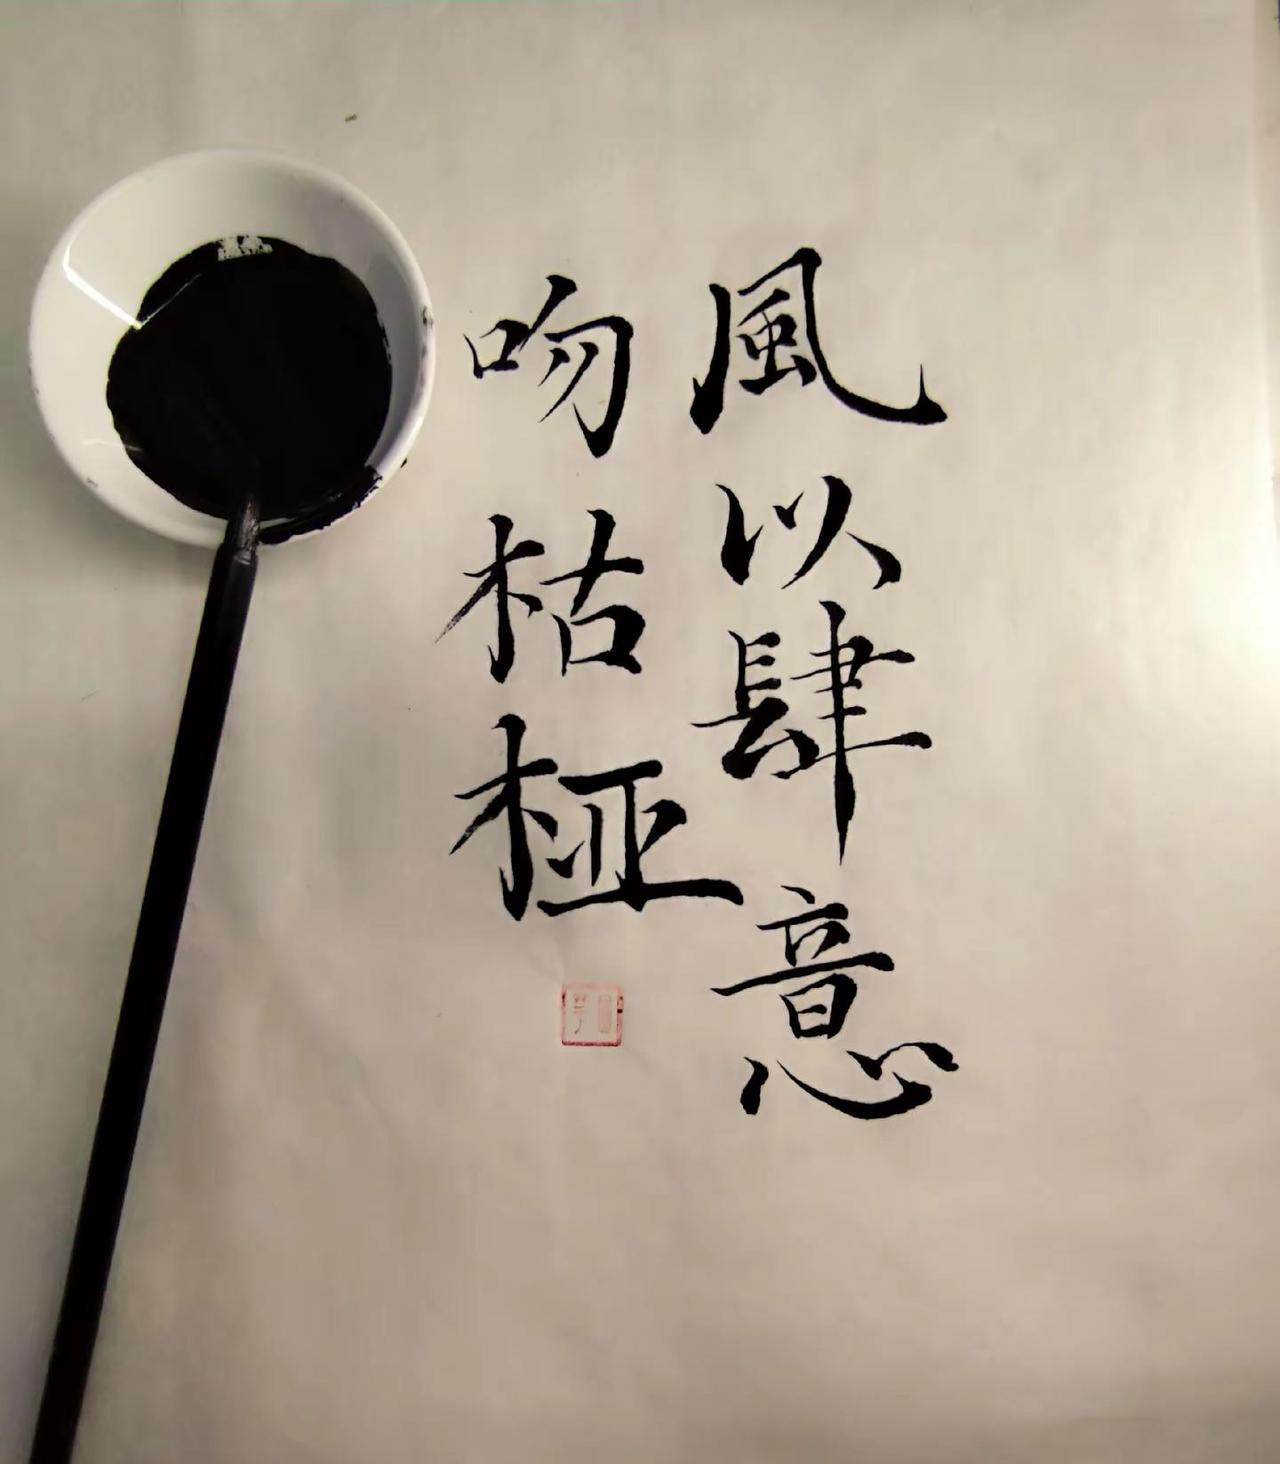 風以肆意
吻枯桠